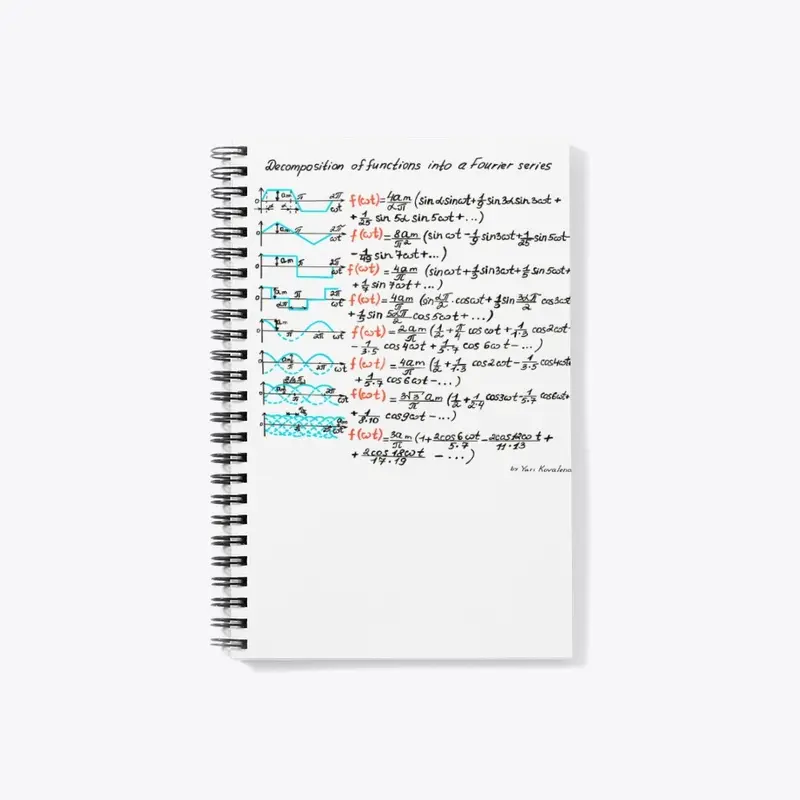 Decomposition of functions into a Fourier series
f(ωt)=4am/απ (sin α sin ωt+1/9 sin 3α sin 3ωt+
+1/25 sin 5α sin 5ωt+...)
f(ωt)=8am/π² (sin ωt-1/9 sin 3ωt+1/25 sin 5ωt-
-1/49 sin 7ωt+...)
f(ωt)=4am/π (sin ωt+1/3 sin 3ωt+1/5 sin 5ωt+
+1/7 sin 7ωt+...)
f(ωt)=4am/π (sin απ/2 · cos ωt+1/3 sin 3απ/2 cos 3ωt
+1/5 sin 5απ/2 cos 5ωt+...)
f(ωt)=2am/π (1/2+π/4 cos ωt+1/1·3 cos 2ωt-
-1/3·5 cos 4ωt+1/5·7 cos 6ωt-...)
f(ωt)=4am/π (1/2+1/1·3 cos 2ωt-1/3·5 cos 4ωt+
+1/5·7 cos 6ωt-...)
f(ωt)=3√3 am/π (1/2+1/2·4 cos 3ωt-1/5·7 cos 6ωt+
+1/8·10 cos 9ωt-...)
f(ωt)=3am/π (1+2cos 6ωt/5·7-2cos 12ωt/11·13+
+2cos 18ωt/17·19 -...)
by Yuri Kovalenо